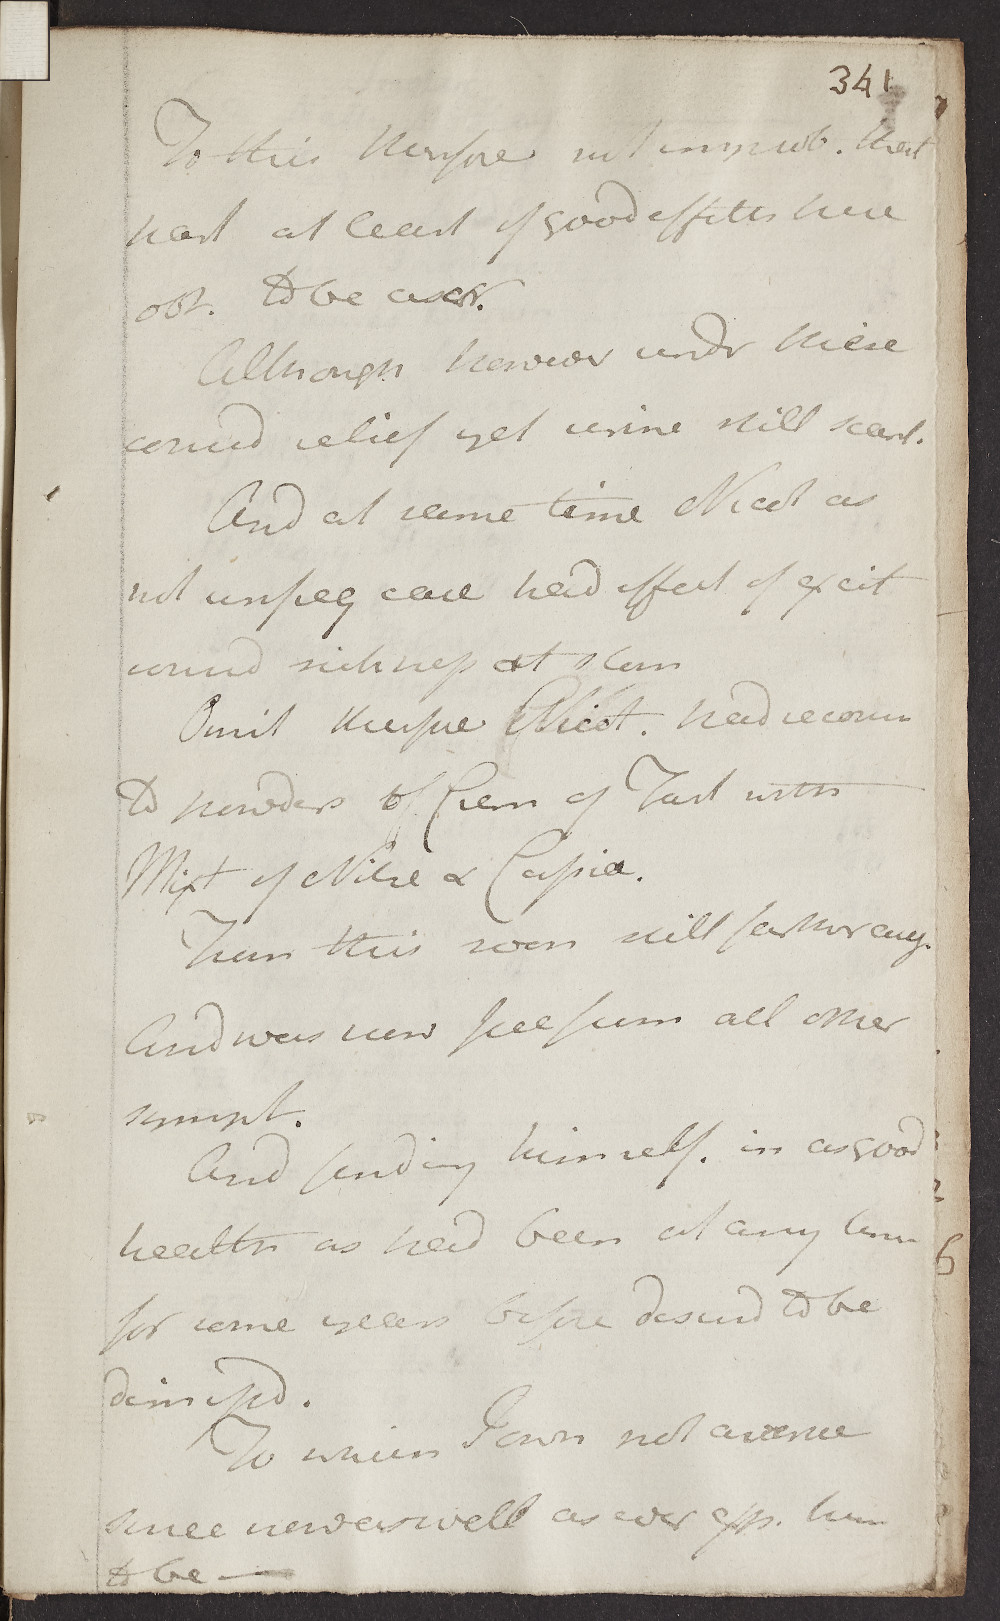 341
To this therfore not improb. that
part at least of good effects here
obs. to be ascr.
Although however under these
consid relief yet urine still scant.
And at same time Nicot as
not unfreq case had effect of excit
consid sickness at stom
Omit therfore Nicot. had recour
to powders of Crem of Tart with
Mixt of Nitre & Cassia.
From this soon still farther aug.
And was now free from all other
sympt.
And finding himself. in as good
health as had been at any time
for some years before desired to be
dismissd.
To which I own not averse
since now as well as ever exp. him
to be —